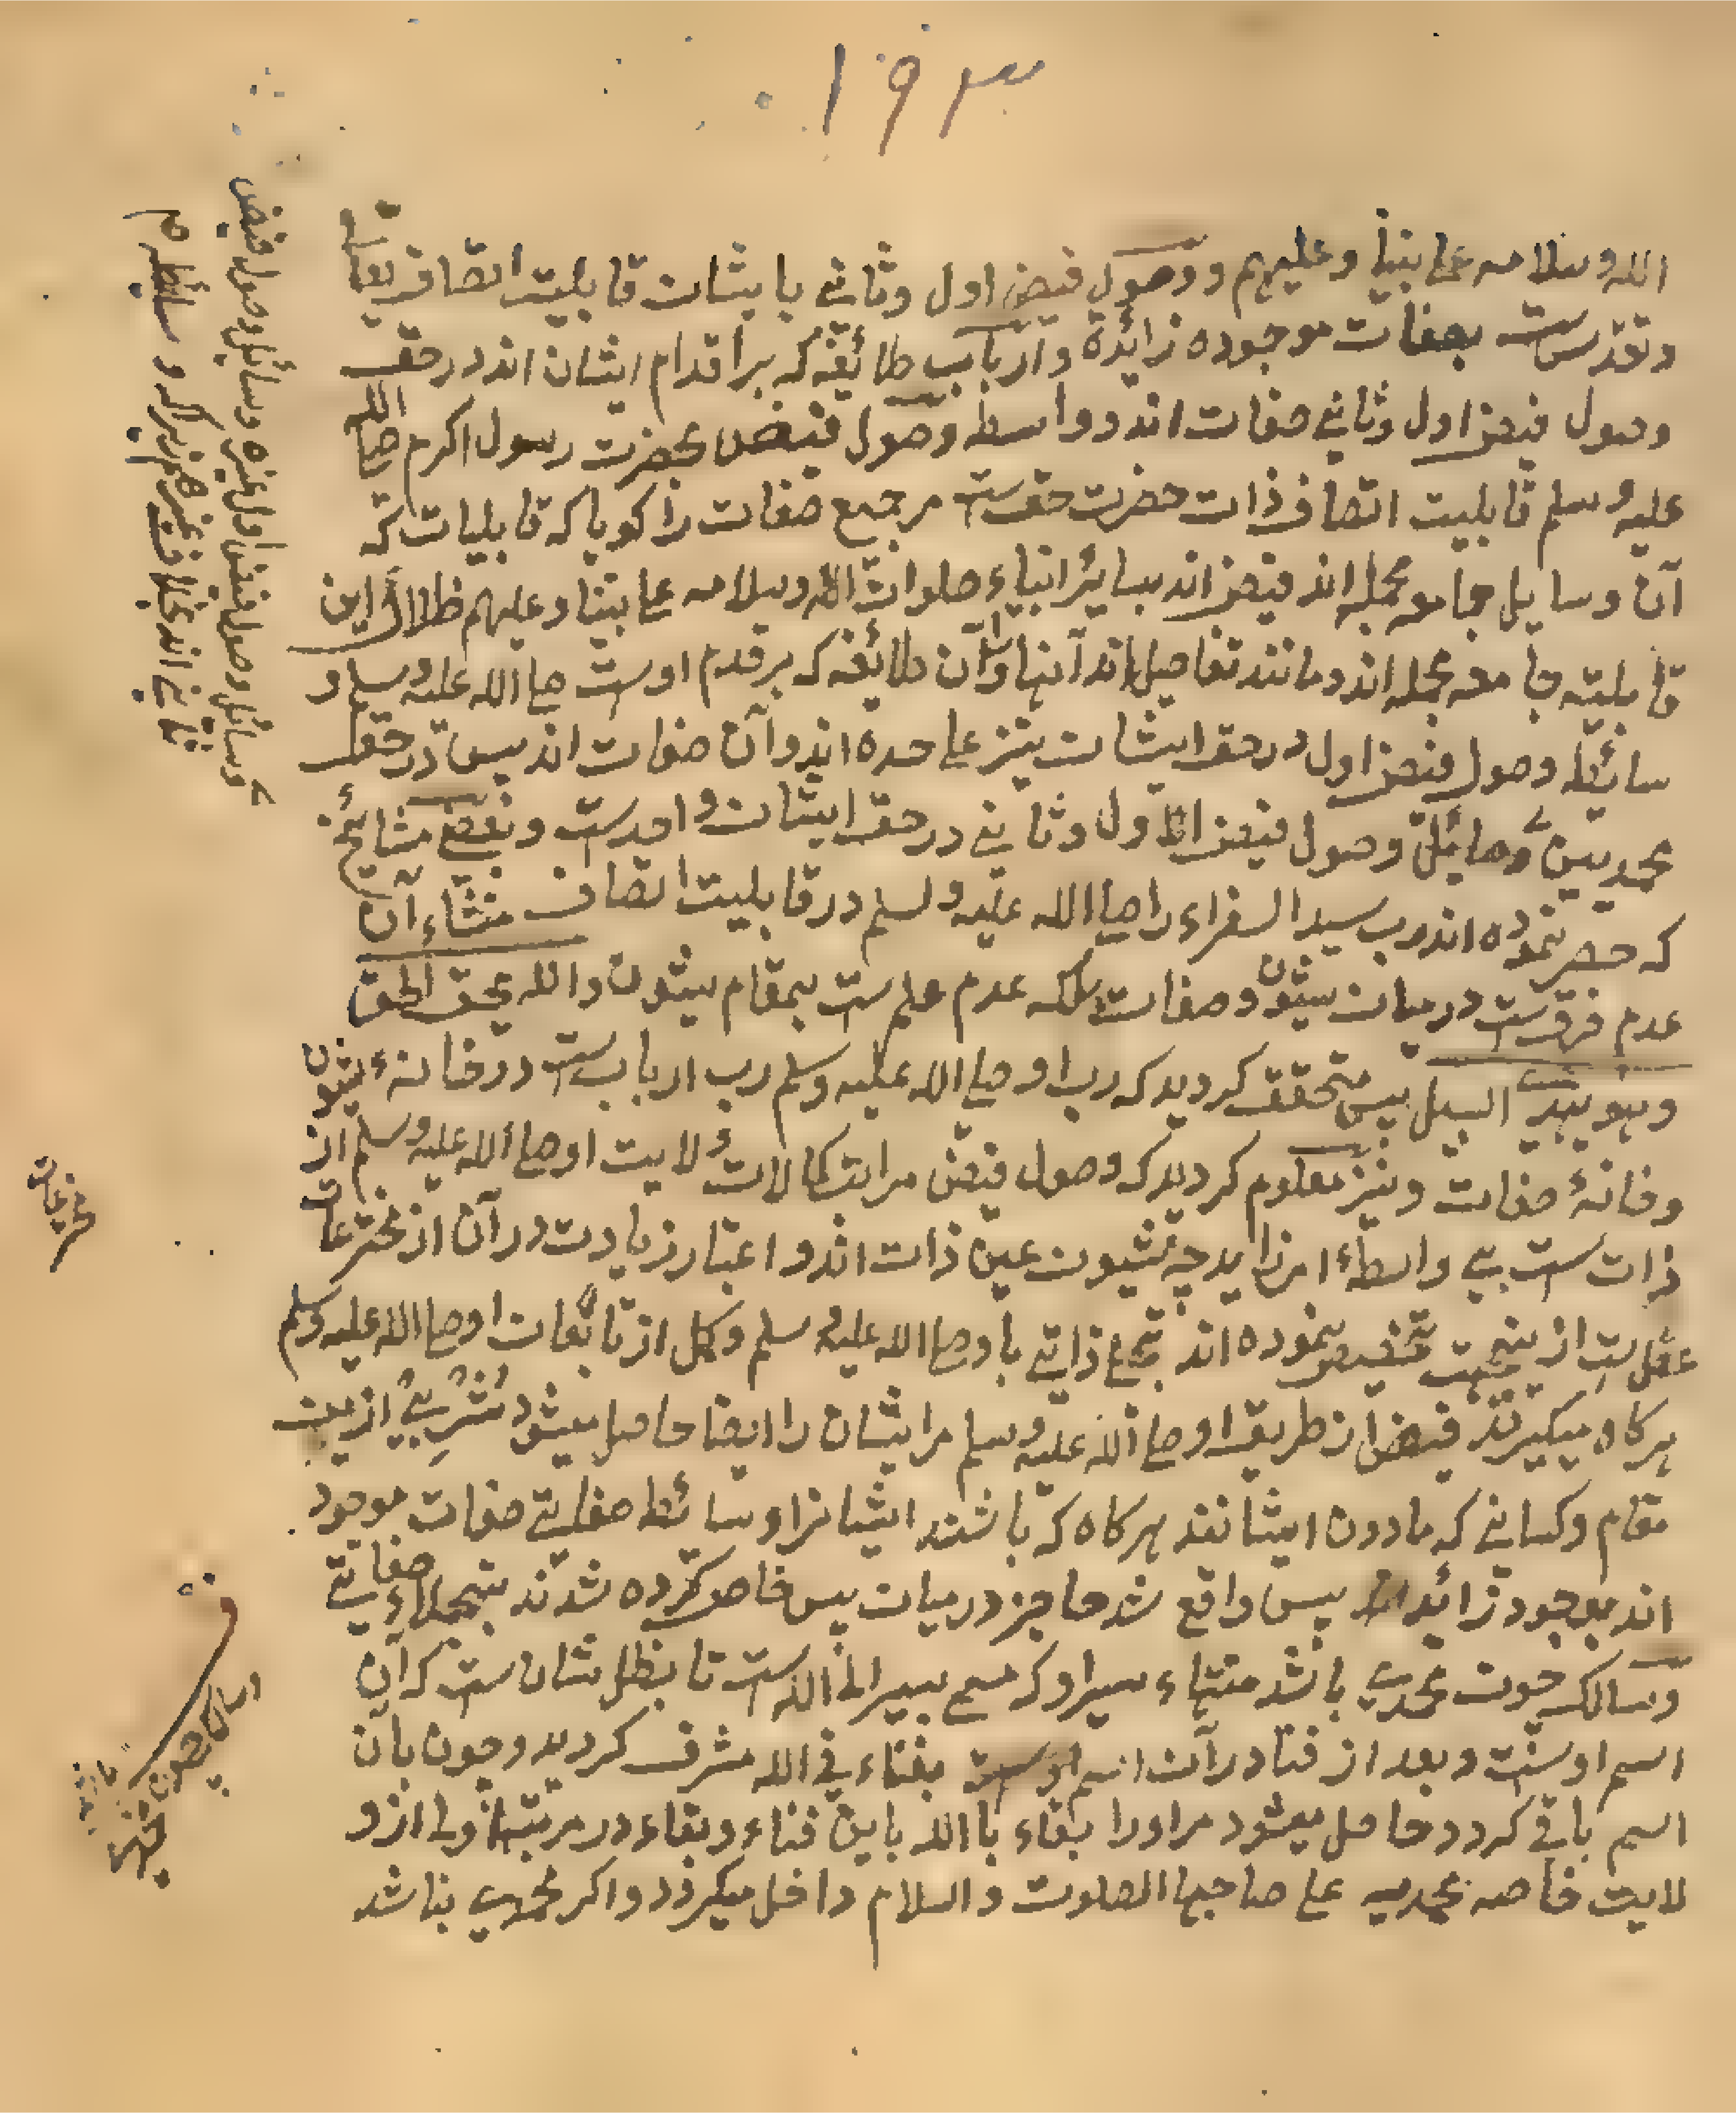 ۱۹۳
الله وسلامه علی نبینا وعلیهم ووصول فیض اول وثانی بایشان قابلیت اتصاف تعالی
وتقدس ست بصفات موجوده زائدة وارباب طائفه که بر اقدام ایشان اند در حق
وصول فیض اول وثانی صفات اند وواسطه وصول فیض بحضرت رسول اکرم صلی الله
علیه وسلم قابلیت اتصاف ذات حضرت حق ست مر جمیع صفات را کویا که قابلیات که
آن وسایل جامعه مجمله اند فیض اند بسایر انبیاء صلوات الله وسلامه علی نبینا وعلیهم ظلال این
قابلیته جامعه مجمله اند ومانند تفاصیل اند آنها را وآن طائفه که بر قدم اوست صلی الله علیه وسلم و
سائطه وصول فیض اول در حق ایشان نیز علی حده اند وآن صفات اند پس در حق
محمدیین وسائل وصول فیض اول وثانی در حق ایشان واحدست وبعضی مشایخ
که حصر نموده اند رب سید السفراء را صلی الله علیه وسلم در قابلیت اتصاف منشاء آن
عدم فرق ست در میان شیون وصفات بلکه عدم علم ست بمقام شیون والله یحق الحق
وهو یهدی السبیل پس متحقق کردید که رب او صلی الله علیه وسلم رب ارباب ست در خانهٔ شیون
وخانهٔ صفات ونیز معلوم کردید که وصول فیض مراتب کمالات ولایت او صلی الله علیه وسلم از
ذات ست بی واسطهٔ امر زاید چه شیون عین ذات اند واعتبار زیادت در آن از مخترعات
عقل ست از ینجهت تخصیص نموده اند تجلی ذاتی باو صلی الله علیه وسلم وکمل از تابعان او صلی الله علیه وسلم
هرکاه میکیرند فیض از طریق او صلی الله علیه وسلم مر ایشان را ایضا حاصل میشود شربی ازین
مقام وکسانی که مادون ایشانند هرکاه که باشند ایشانرا وسائط صفاتی صفات موجود
اند بوجود زائد پس واقع شد حاجز درمیان پس خاص کرده شدند بتجلاء صفاتی
وسالک چون محمدی باشد منتهاء سیر او که مسمی بسیر الی الله ست تا بظل شان ست که آن
اسم اوست وبعد از فنا در آن اسم اوست بفناء فی الله مشرف کردید وچون بآن
اسم باقی کردد حاصل میشود مر اورا بقاء باالله باین فناء وبقاء در مرتبهٔ اولی از و
لایت خاصه محمدیه علی صاحبها الصلوت والسلام داخل میکردد واکر محمدی نباشد
وسائل وصول فیض اول غیره وسائل وصول فیض
ثانی اند بخلاف غیرهم
مخترعات